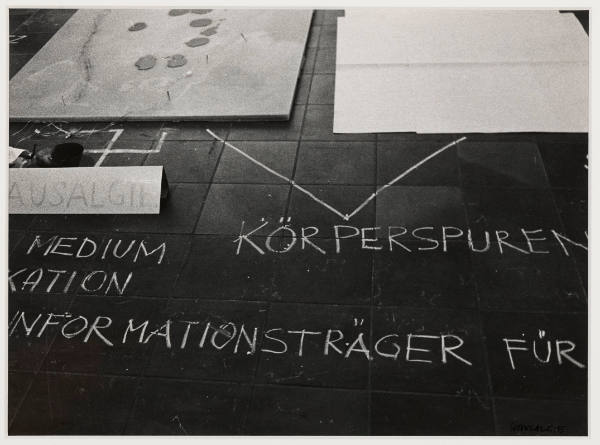 AUSALGIE
MEDIUM KÖRPERSPUREN
KATION
INFORMATIONSTRÄGER FÜR